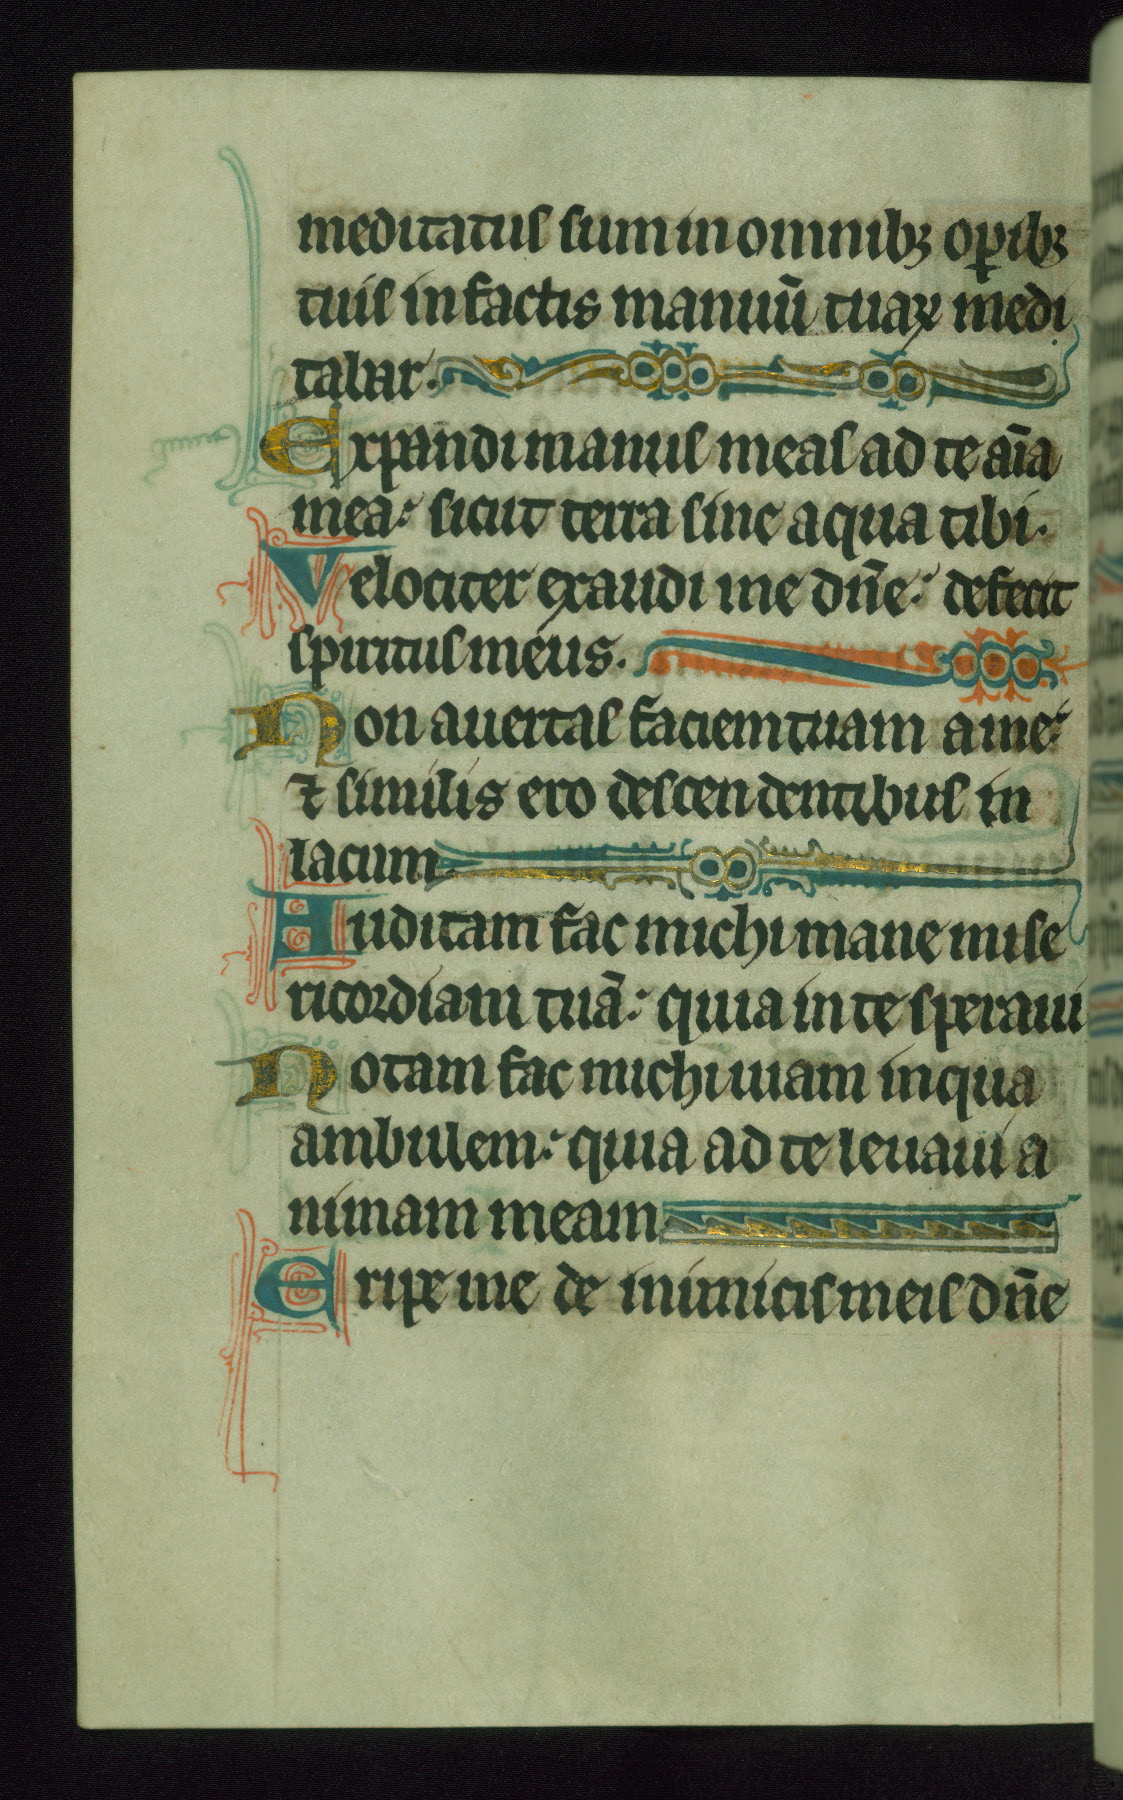 meditatus sum in omnibꝫ oꝑibꝫ
tuis in factis manuū tuaꝝ medi
tabar.
Expandi manus meas ad te aīa
mea: sicut terra sine aqua tibi.
Velociter exaudi me dn̄e: defecit
spiritus meus.
Non auertas faciem tuam a me:
⁊ similis ero descendentibus in
lacum.
Auditam fac michi mane mise
ricordiam tuā: quia in te speraui
Notam fac michi uiam in qua
ambulem: quia ad te leuaui a
nimam meam
Eripe me de inimicis meis dn̄e